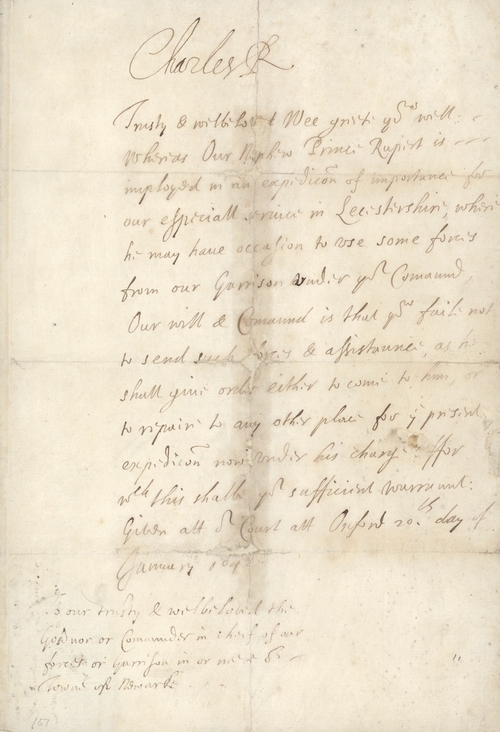 Charles R
Trusty & welbeloved Wee greete yo.u well:
Whereas Our Nephew Prince Rupert is
imployed in an expedicōn of importance for
our especiall service in Leicestershire, where
he may have occasion to use some forces
from our Garrison under yo.r Com̄aund,
Our will & Com̄aund is that yo.u faile not
to send such forces & assistaunce, as he
shall give order either to come to him, or
to repaire to any other place for y present
expedicōn now under his charge: ffor
w.ch this shalbe yo.r sufficient warrant.
Given att o.r Court att Oxford 20.th day of
January 164
To our trusty & welbeloved the
Governor or Com̄aunder in cheif of our
forces or Garrison in or neere o.r
Towne of Newarke
(67)